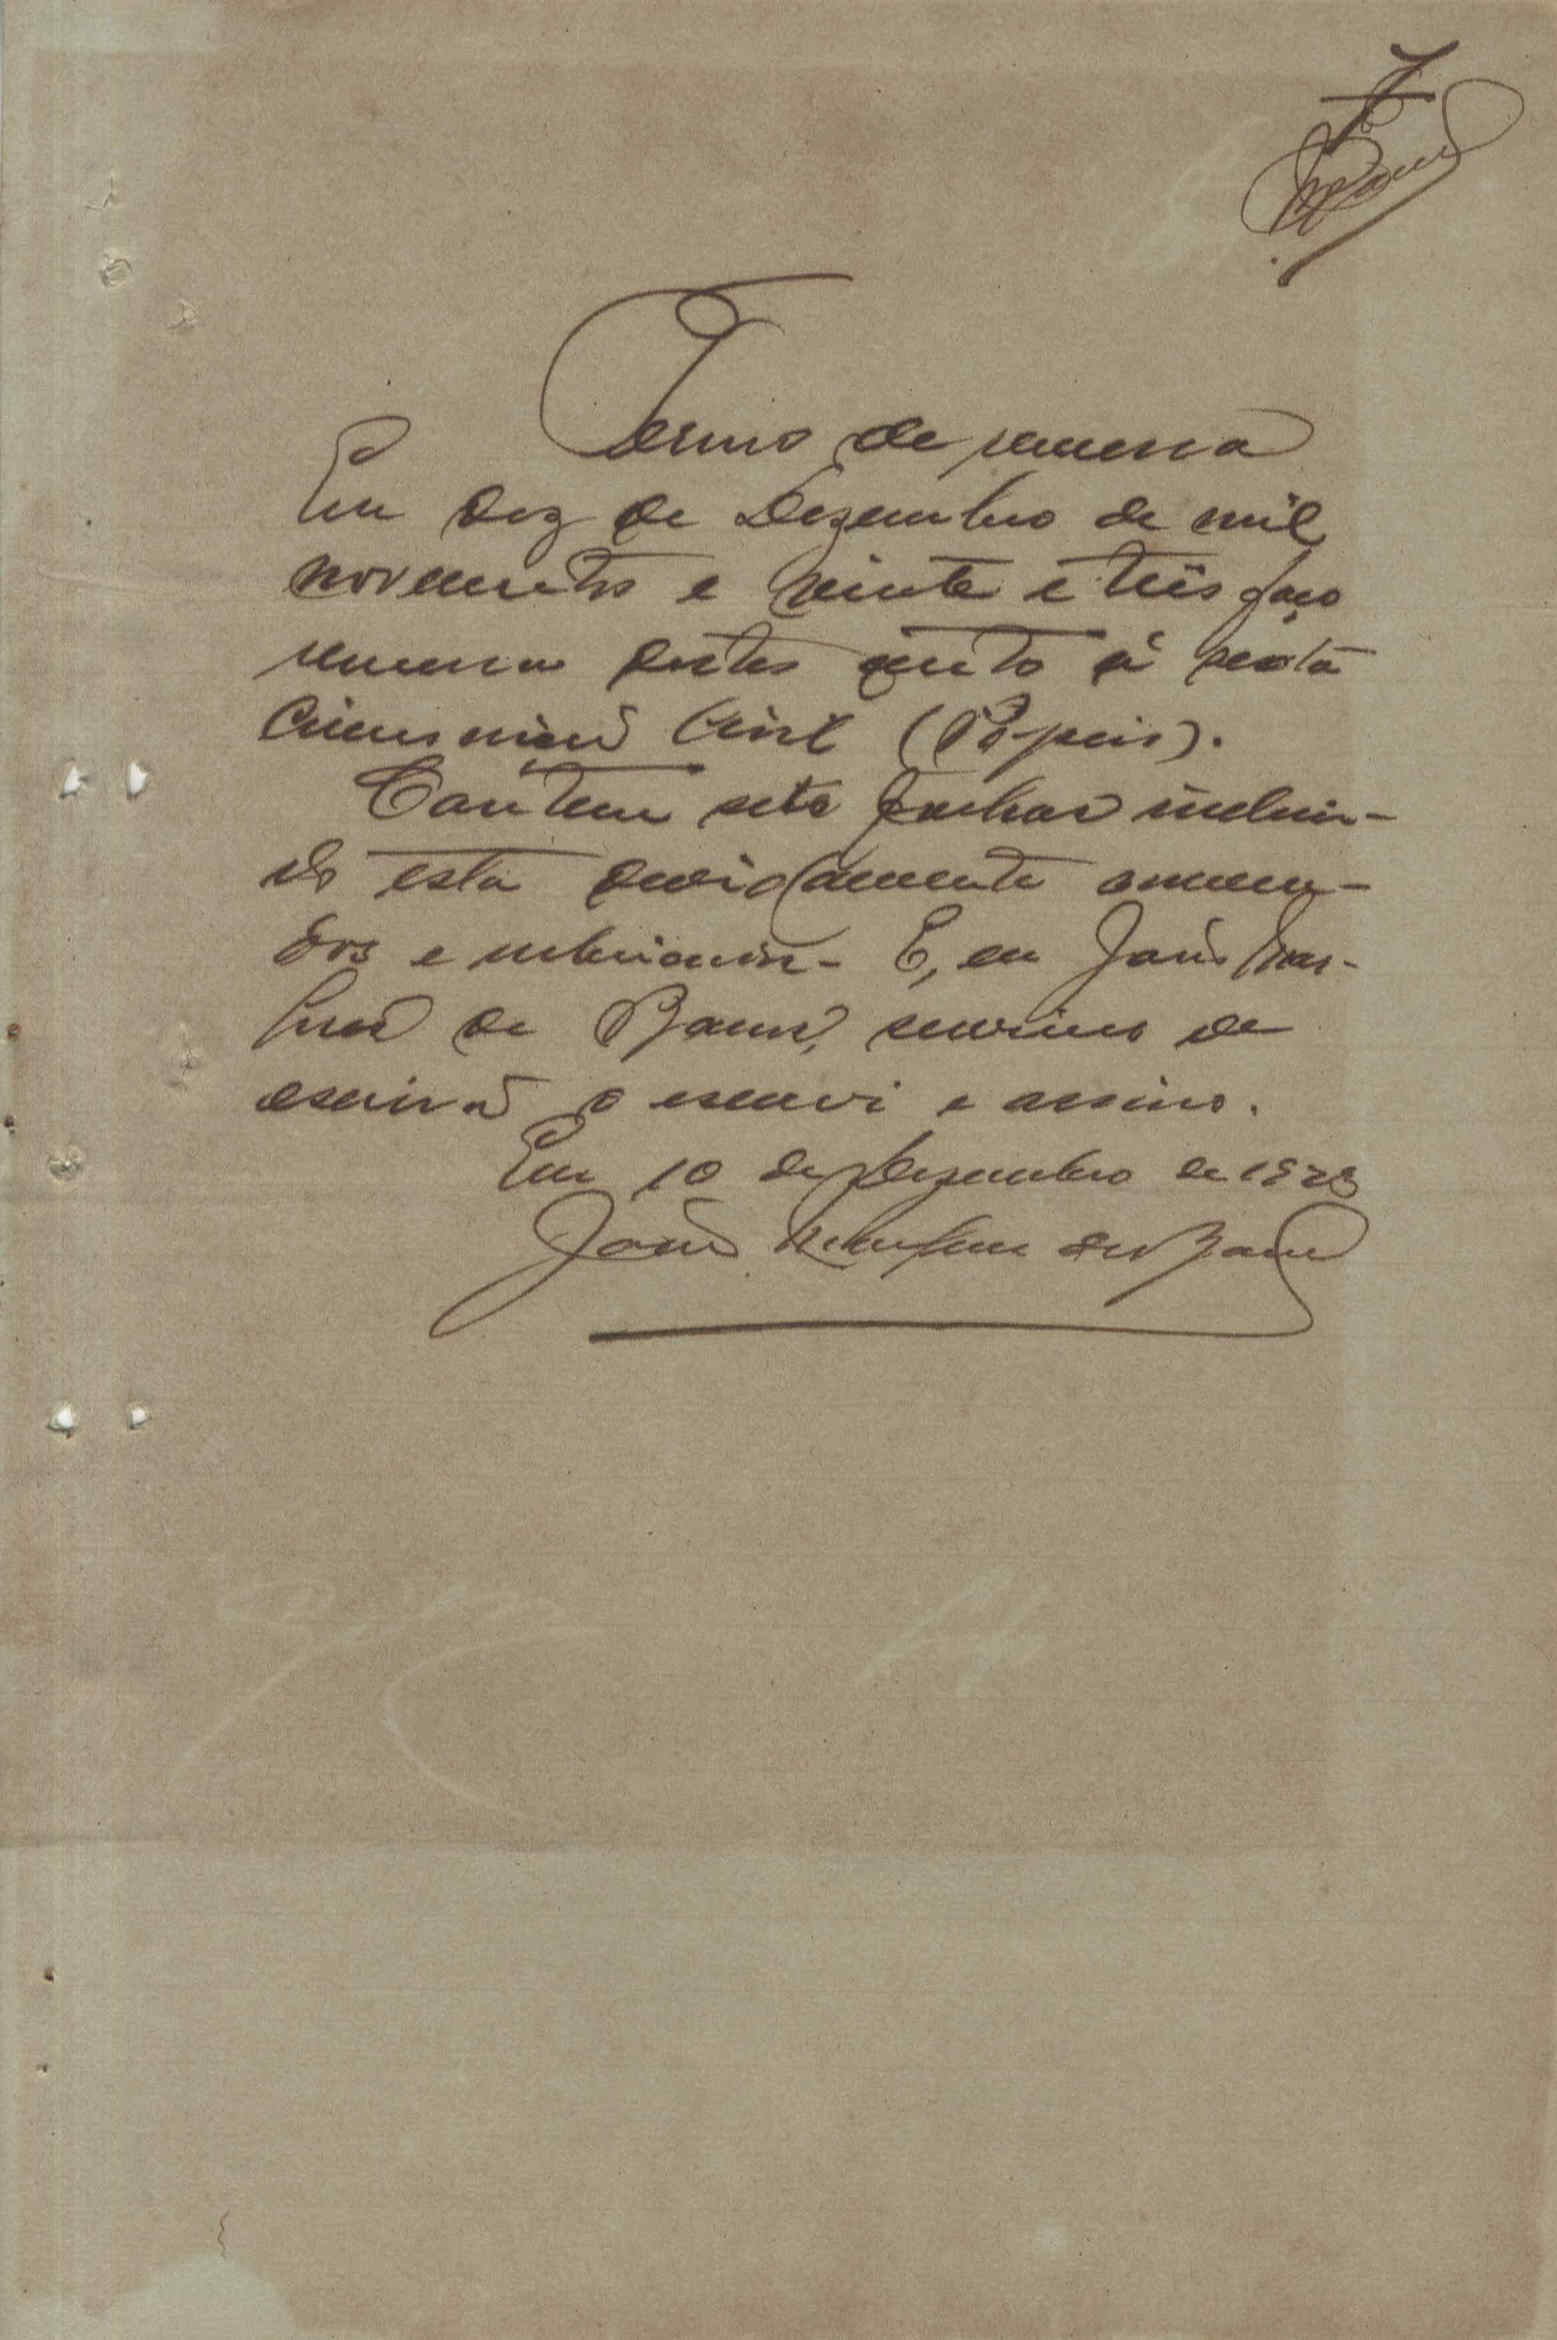 7
Termo de remessa
Em dez de Dezembro de mil
novecentos e vinte e tres faço
remessa destes autos á sexta
Circunscrição Civil
Contem sete folhas incluin-
do esta devidamente numera-
das e rubricadas - E, eu João
de Barros, servindo de
escrivão o escrevi e assino.
Em 10 de Dezembro de 1923
João de Barros